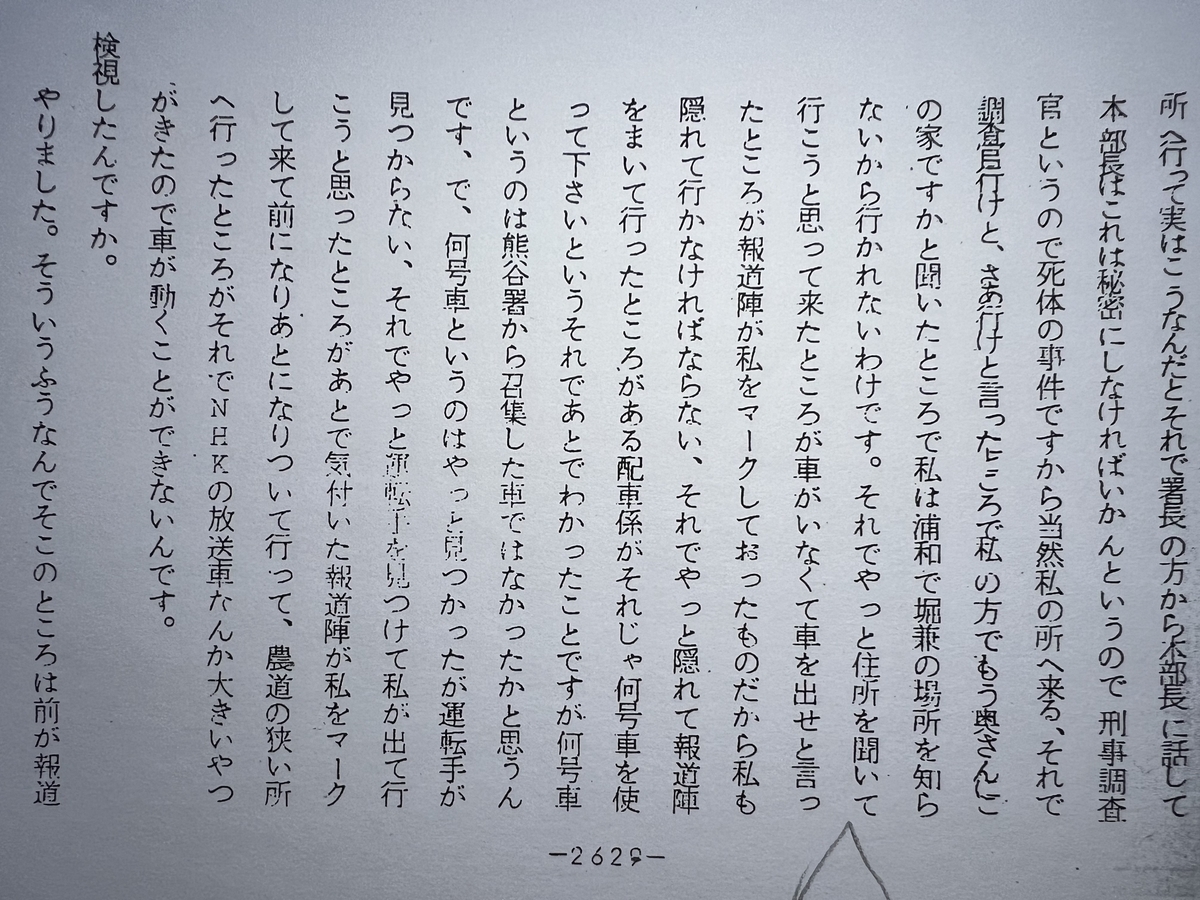 所へ行って実はこうなんだとそれで署長の方から本部長に話して
本部長はこれは秘密にしなければいかんというので刑事調査
官というので死体の事件ですから当然私の所へ来る、それで
調査官行けと、さあ行けと言ったところで私の方でもう奥さんこ
の家ですかと聞いたところで私は浦和で堀兼の場所を知ら
ないから行かれないわけです。それでやっと住所を聞いて
行こうと思って来たところが車がいなくて車を出せと言っ
たところが報道陣が私をマークしておったものだから私も
隠れて行かなければならない、それでやっと隠れて報道陣
をまいて行ったところがある配車係がそれじゃ何号車を使
って下さいというそれであとでわかったことですが何号車
というのは熊谷署から召集した車ではなかったかと思うん
です、で、何号車というのはやっと見つかったが運転手が
見つからない、それでやっと運転手を見つけて私が出て行
こうと思ったところがあとで気付いた報道陣が私をマーク
して来て前になりあとになりついて行って、農道の狭い所
へ行ったところがそれでNHKの放送車なんか大きいやつ
がきたので車が動くことができないんです。
検視したんですか。
やりました。そういうふうなんでそこのところは前が報道
—2629—